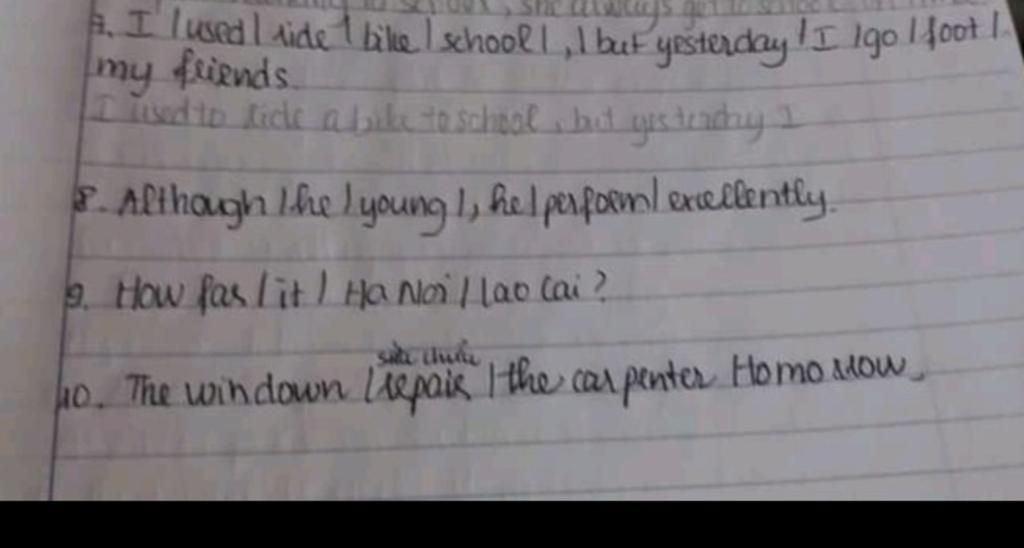 7. I / used / ride / bike / school / , / but yesterday / I / go / foot /
my friends.
I used to ride a bike to school, but yesterday I
8. Although / he / young /, he / perform / excellently.
9. How far / it / Ha Noi / lao Cai?
sửa chữa
10. The windown / repair / the carpenter Homorrow.